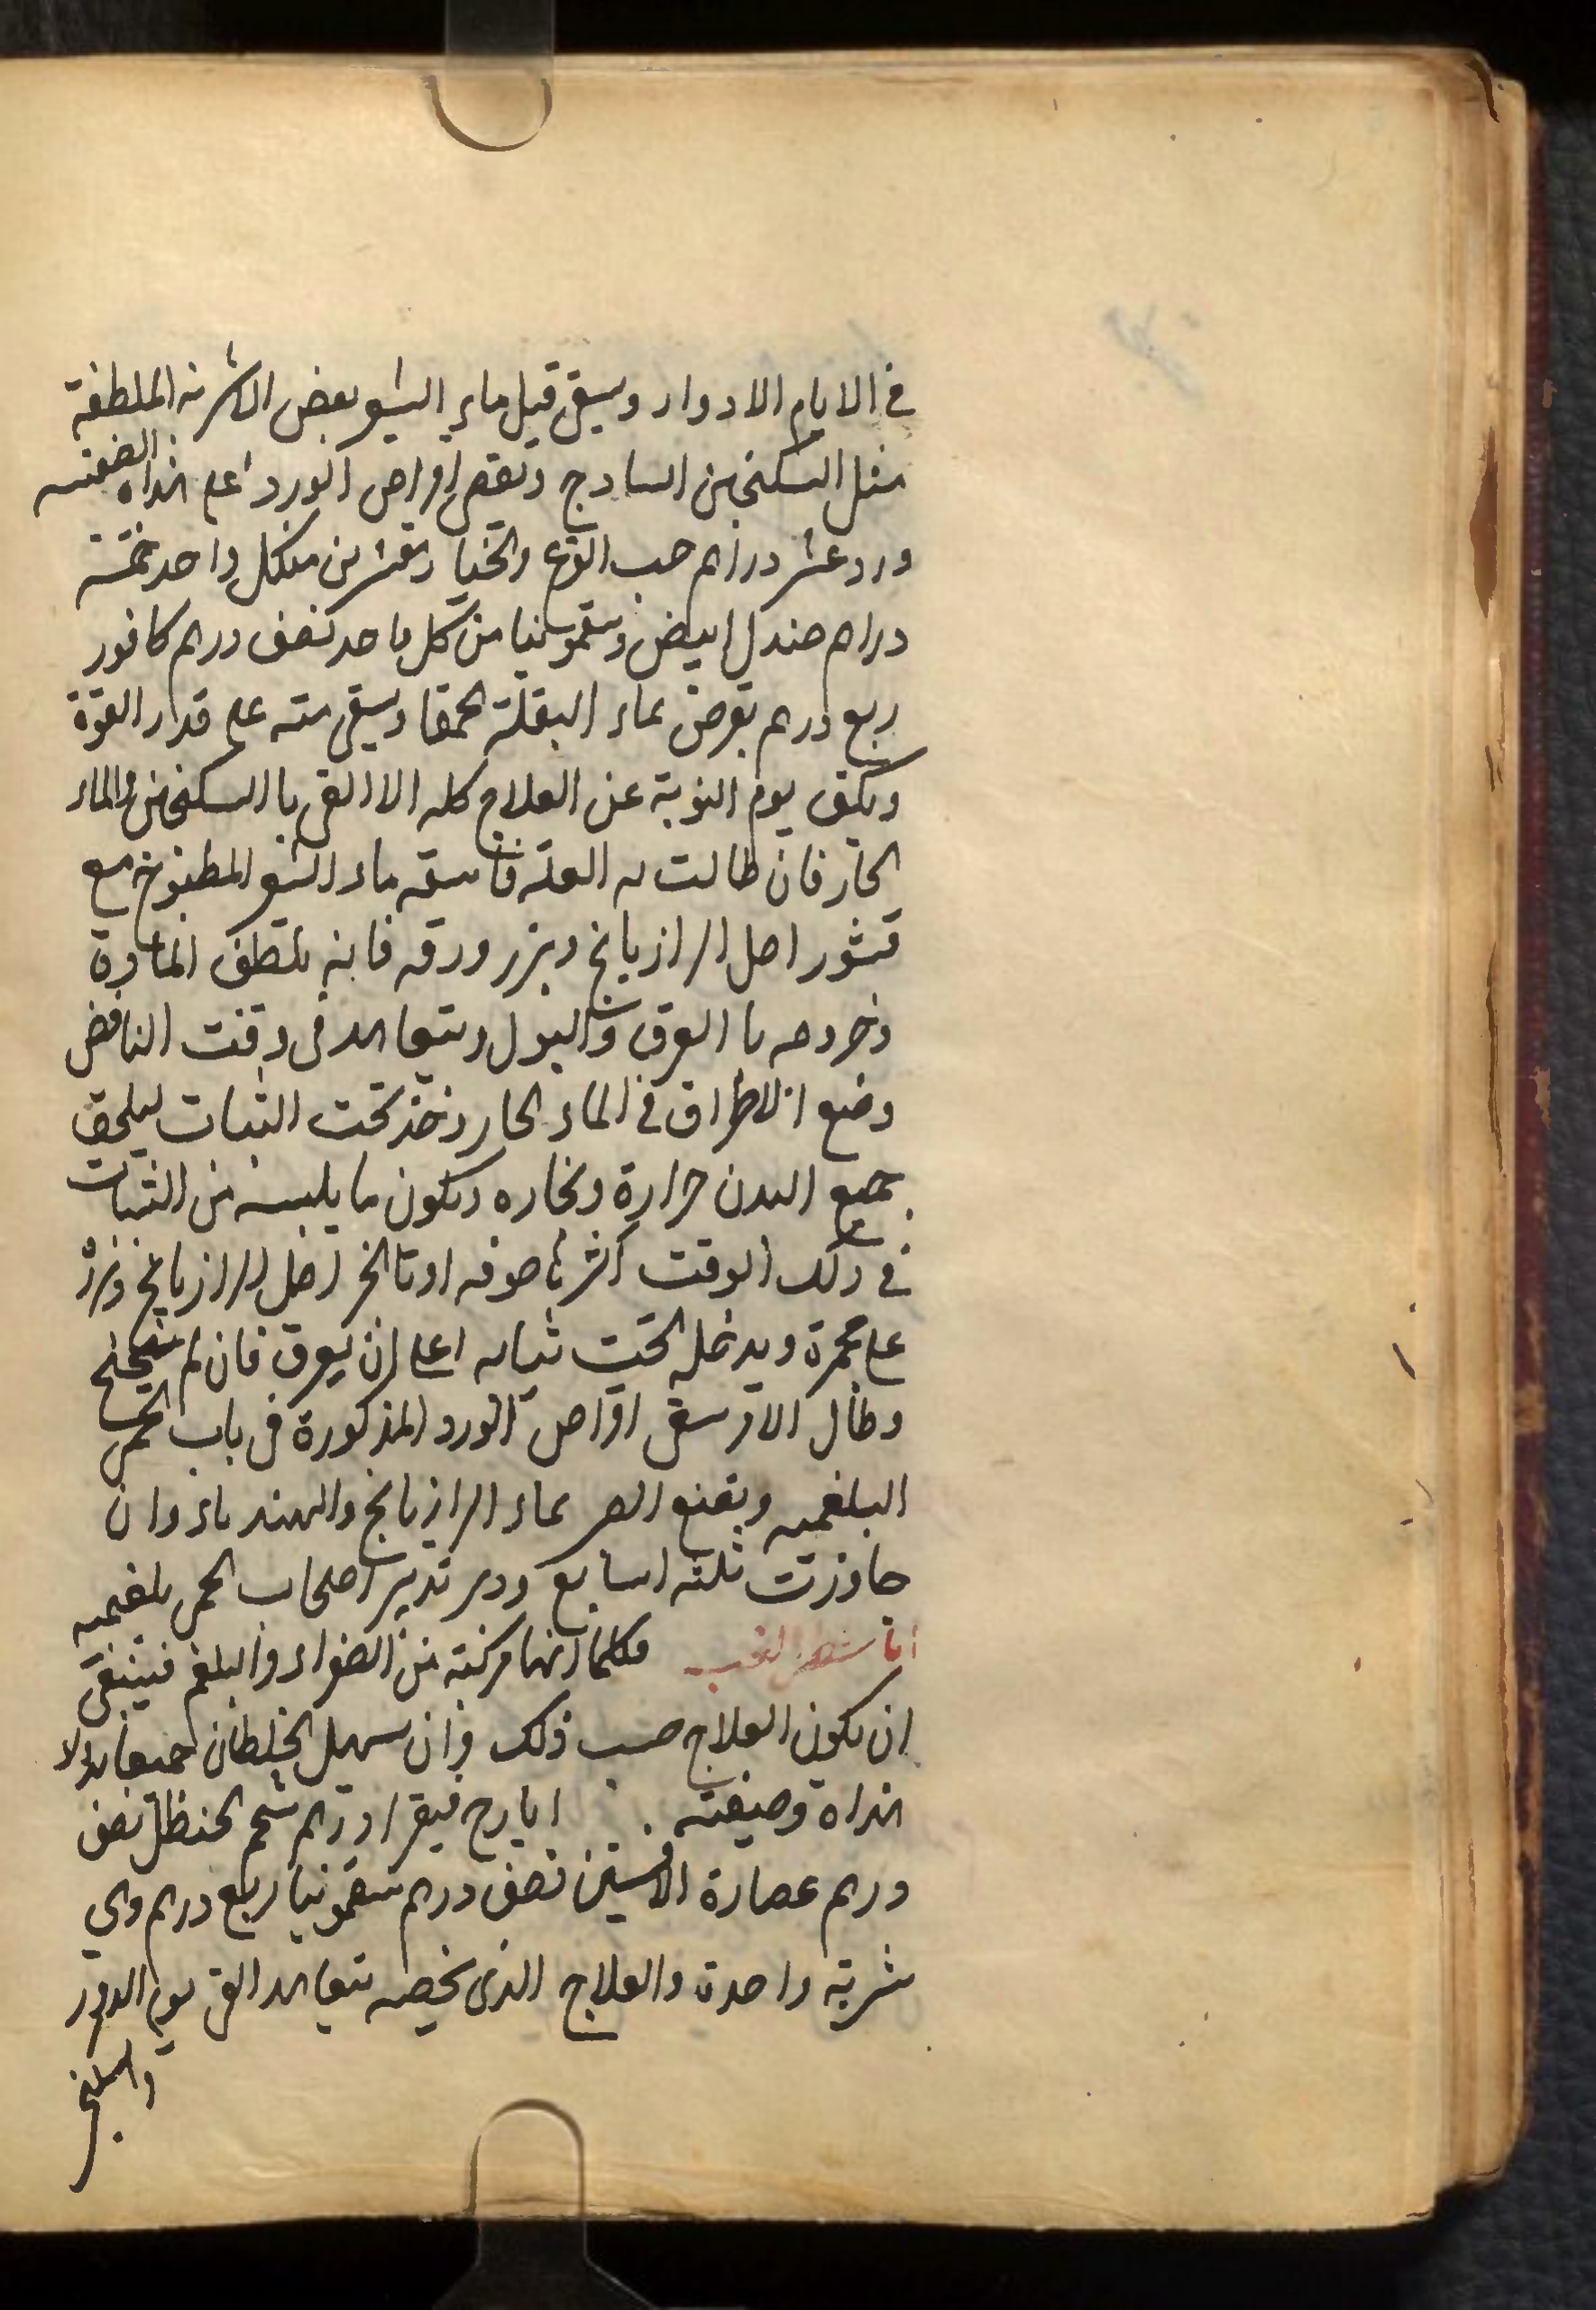 في الايام الادوار ويسقى قبل ماء الشعير بعض الاشربه الملطفة
مثل السكنجبين السادج وبعض اقراص الورد اعلى هذاه الصفته
ورد عشر دراهم حب القرع والخيار مقشرين من كل واحد خمسة
دراهم صندل ابيض وسقمونيا من كل واحد نصف درهم كافور
ربع درهم يقرص بماء البقلة الحمقا ويسقى منه على قدار القوة
ويكف يوم النوبة عن العلاج كله الا القى با السكنجبين والماء
الحار فان طالت به العله فاسقه ماء الشعير المطبوخ مع
قشور اصل الرازيانج وبزر ورقه فانه يلطف المادة
وخروجه با العرق والبول ويتعاهد في وقت النافض
وضع الاطراف في الماء الحار وتحت الثياب ليلحق
جميع البدن حرارة وبخاره ويكون ما يلبسه من الثياب
في ذلك الوقت اكثرها صوفه اصل الرازيانج وبزره
على مجمرة ويدخله تحت ثيابه اعلى ان يعرق فان لم ينجح
وطال الامر سقى اقراص الورد المذكورة في باب الحمى
البلغميه وبقنع الصبر بماء الرازيانج والهندباء وان
جاوزت ثلثه اسابيع ودبر تدبير اصحاب الحمى بلغميه
اما شطر الغب فكلما انها مركبة من الصفراء والبلغم فينبغى
ان يكون العلاج حسب ذلك وان يسهل الخلطان جميعا
هذاه وصيفته ايارج فيقرا درهم شحم الحنظل نصف
درهم عصارة الافسنتين نصف درهم سقمونيا ربع درهم وهي
شربة واحدة والعلاج الذى يخصه يتعاهد القى يوم الدور